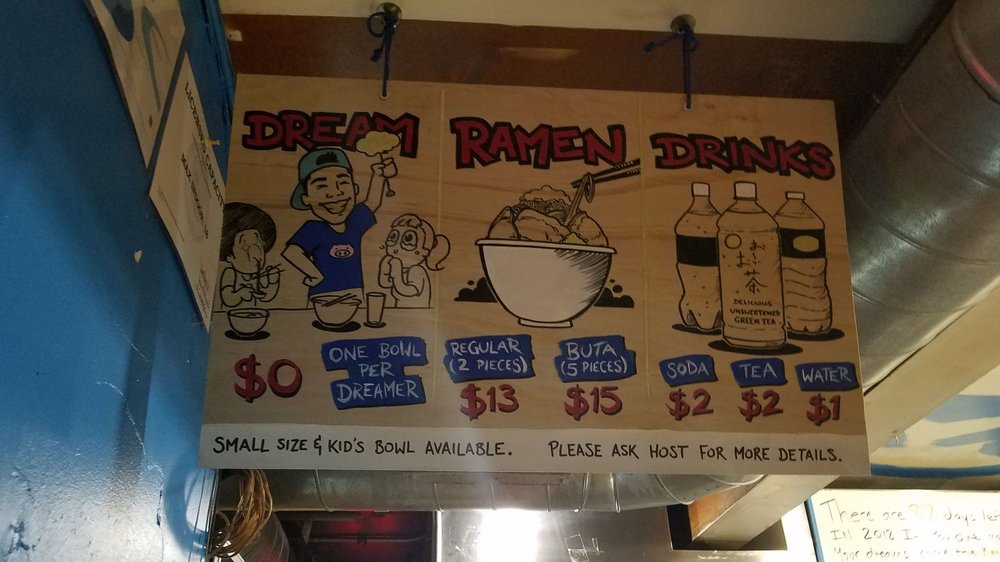 DREAM
$0
ONE BOWL
PER
DREAMER
RAMEN
REGULAR
(2 PIECES)
$13
BUTA
(5 PIECES)
$15
DRINKS
お〜いお茶
DELICIOUS
UNSWEETENED
GREEN TEA
SODA
$2
TEA
$2
WATER
$1
SMALL SIZE & KID'S BOWL AVAILABLE. PLEASE ASK HOST FOR MORE DETAILS.
There are 87 days left
IN 2018
Your dreams come true